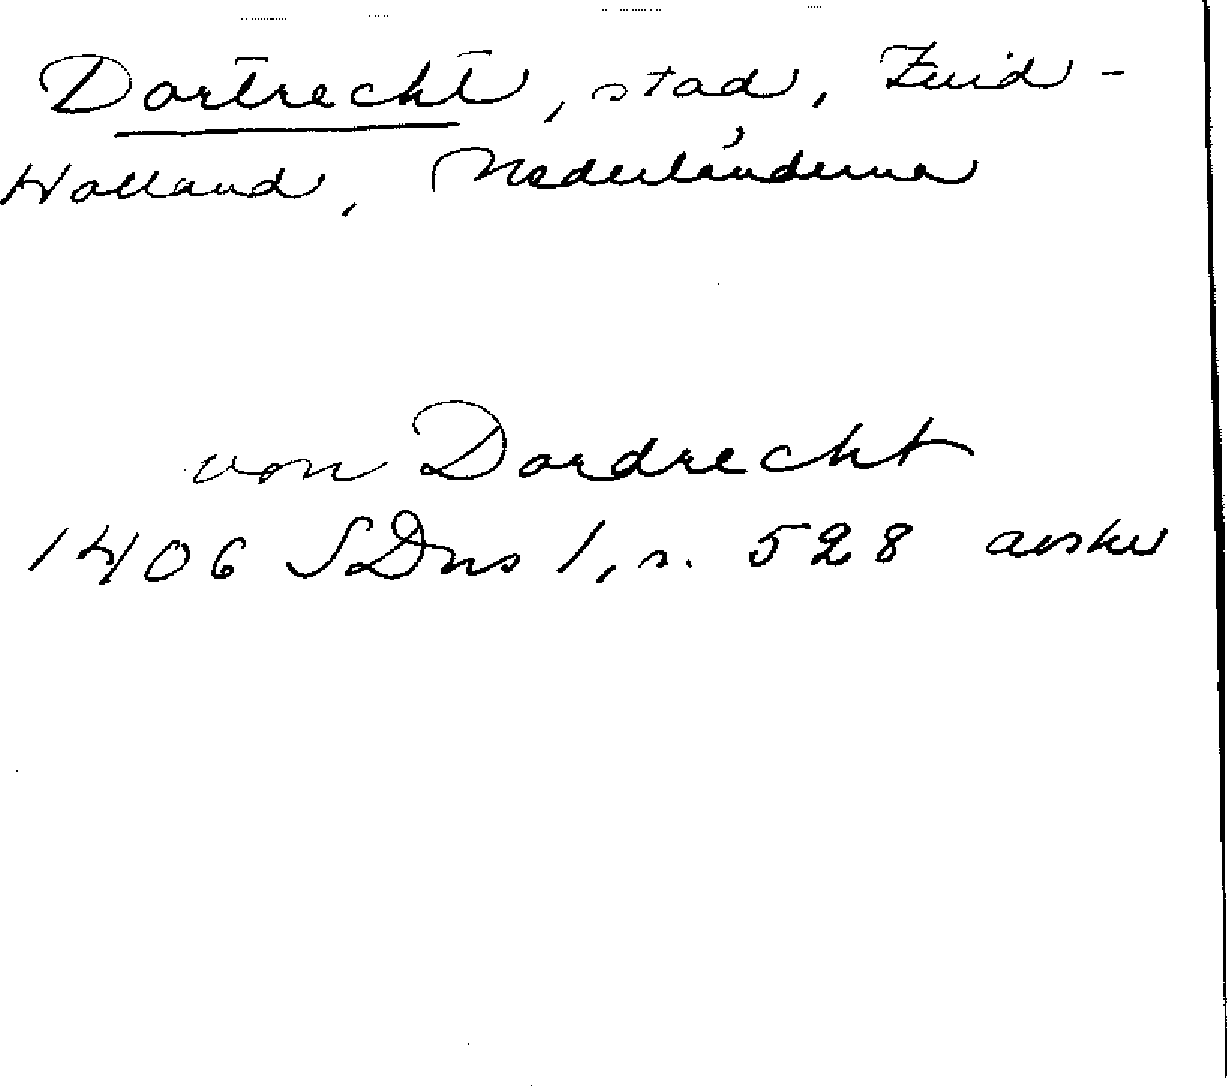 Dortrecht, stad, Zuid-
Holland, Nederländerna
von Dordrecht
1406 SDns 1, s. 528 avskr